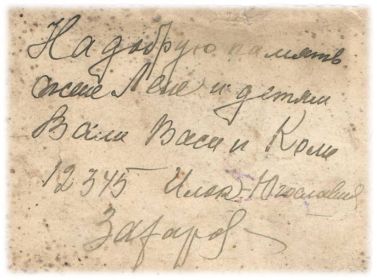 На добрую память
жене Лене и детям
Вали Васи и Коли
12 345 Илок-Югославия
Захаров